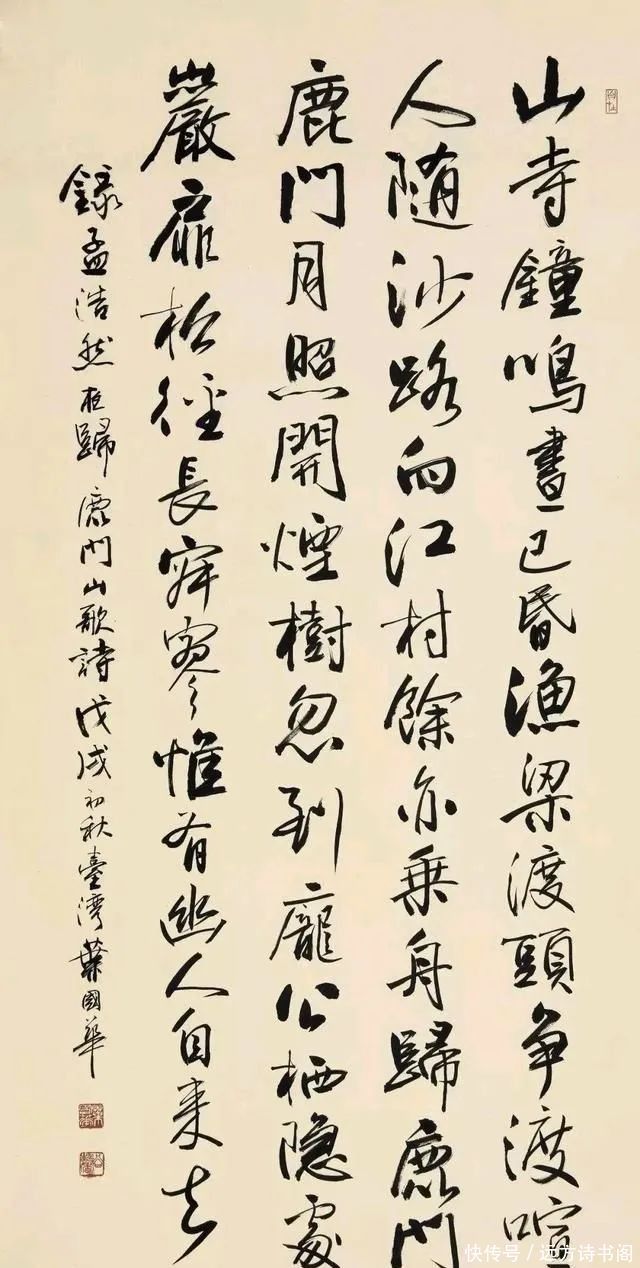 山寺鐘鳴晝已昏漁梁渡頭争渡喧
人随沙路向江村餘亦乗舟歸鹿門
鹿門月照開煙樹忽到龐公栖隐處
巖扉松徑長寂寥惟有幽人自来去
録孟浩然夜歸鹿門山歌詩戊戌初秋臺灣葉國華
快传号/远方诗书阁